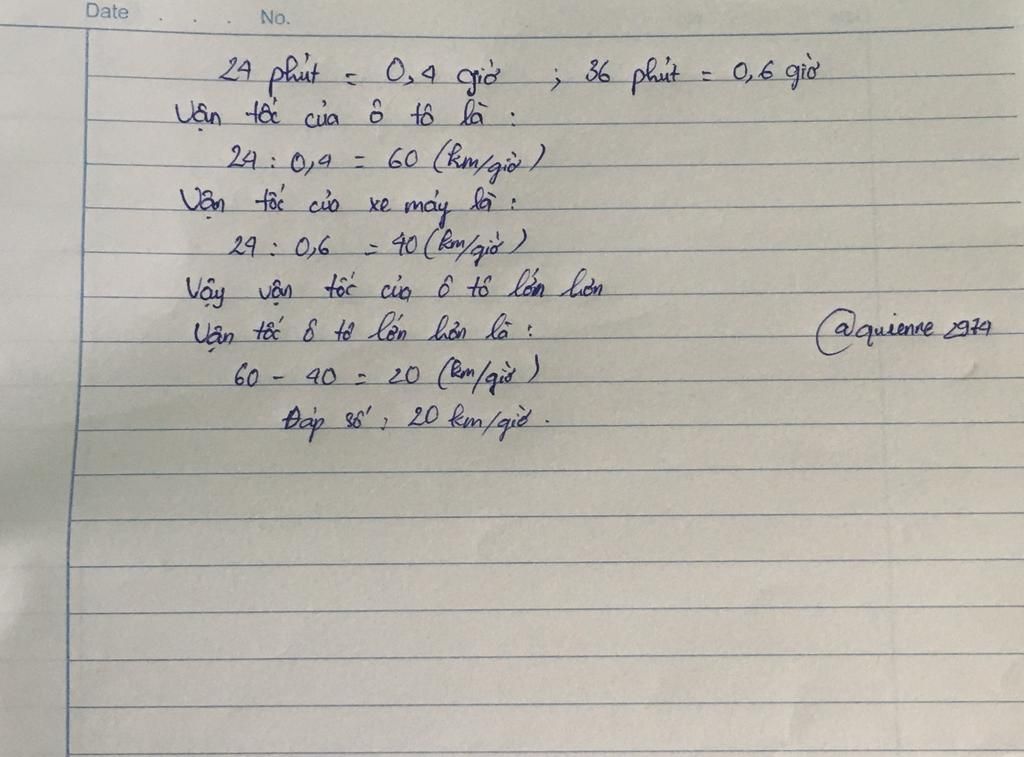 Date . . . No.
24 phút = 0,4 giờ ; 36 phút = 0,6 giờ
Vận tốc của ô tô là :
24 : 0,4 = 60 (km/giờ)
Vận tốc của xe máy là :
24 : 0,6 = 40 (km/giờ)
Vậy vận tốc của ô tô lớn hơn
Vận tốc ô tô lớn hơn là :
@quienne 2974
60 - 40 = 20 (km/giờ)
Đáp số : 20 km/giờ.